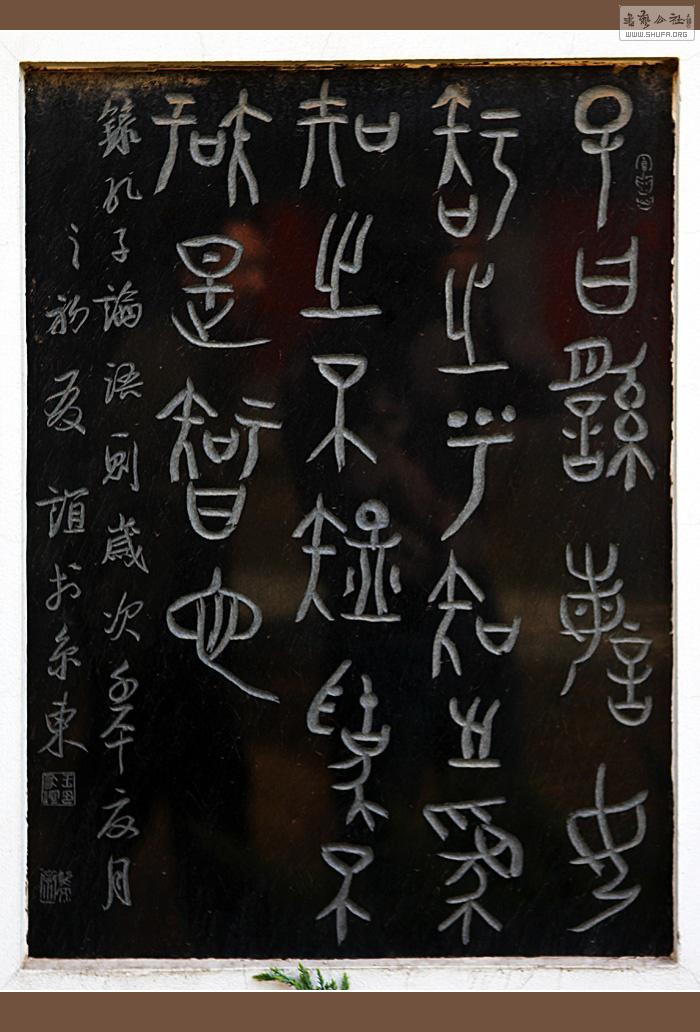 子曰繇誨女
智之乎知之為
知之不知為不
知是智也
錄孔子論語一則歲次壬午夏月
之初友誼於京東
書藝公社
WWW.SHUFA.ORG